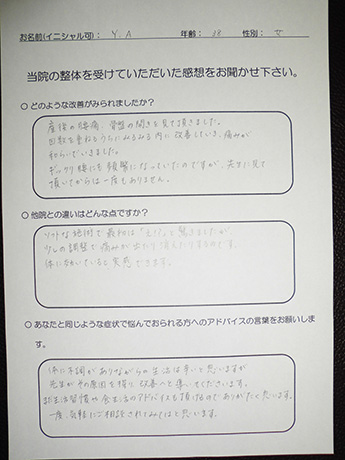 お名前(イニシャル可): Y.A 年齢: 38 性別: 女
当院の整体を受けていただいた感想をお聞かせ下さい。
○ どのような改善がみられましたか?
産後の腰痛、骨盤の開きを見て頂きました。
回数を重ねるうちにみるみる内に改善していき、痛みが
和らいでいきました。
ギックリ腰にも頻繁になっていたのですが、先生に見て
頂いてからは一度もありません。
○ 他院との違いはどんな点ですか?
ソフトな施術で最初は「えっ?」と驚きましたが
少しの調整で痛みが
体に
実感できます。
○ あなたと同じような症状で悩んでおられる方へのアドバイスの言葉をお願いしま
す。
体に不調がありながらの生活は辛いと思いますが
先生がその原因を探り改善へと導いてくださいます。
生活習慣や食生活のアドバイスも頂けるのでありがたく思います。
一度、気軽にご相談されてみてはと思います。